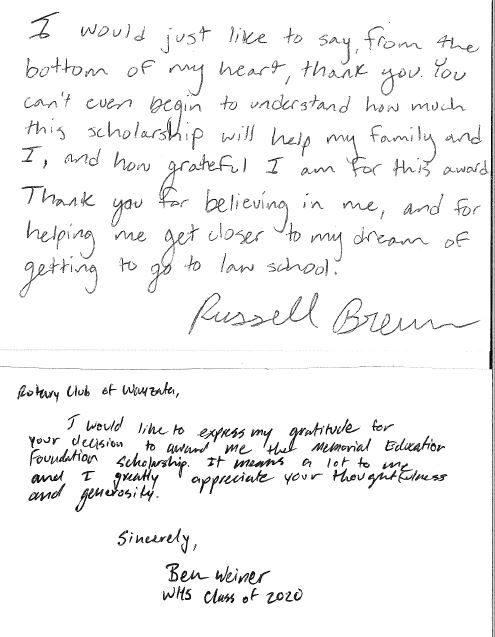 I would just like to say, from the
bottom of my heart, thank you. You
can't even begin to understand how much
this scholarship will help my family and
I, and how grateful I am for this award.
Thank you for believing in me, and for
helping me get closer to my dream of
getting to go to law school.
Russell
Rotary Club of Wayzata,
I would like to express my gratitude for
your decision to award me the Memorial Education
Foundation Scholarship. It means a lot to me
and I greatly appreciate your thoughtfulness
and generosity.
Sincerely,
Ben Weiner
WHS Class of 2020